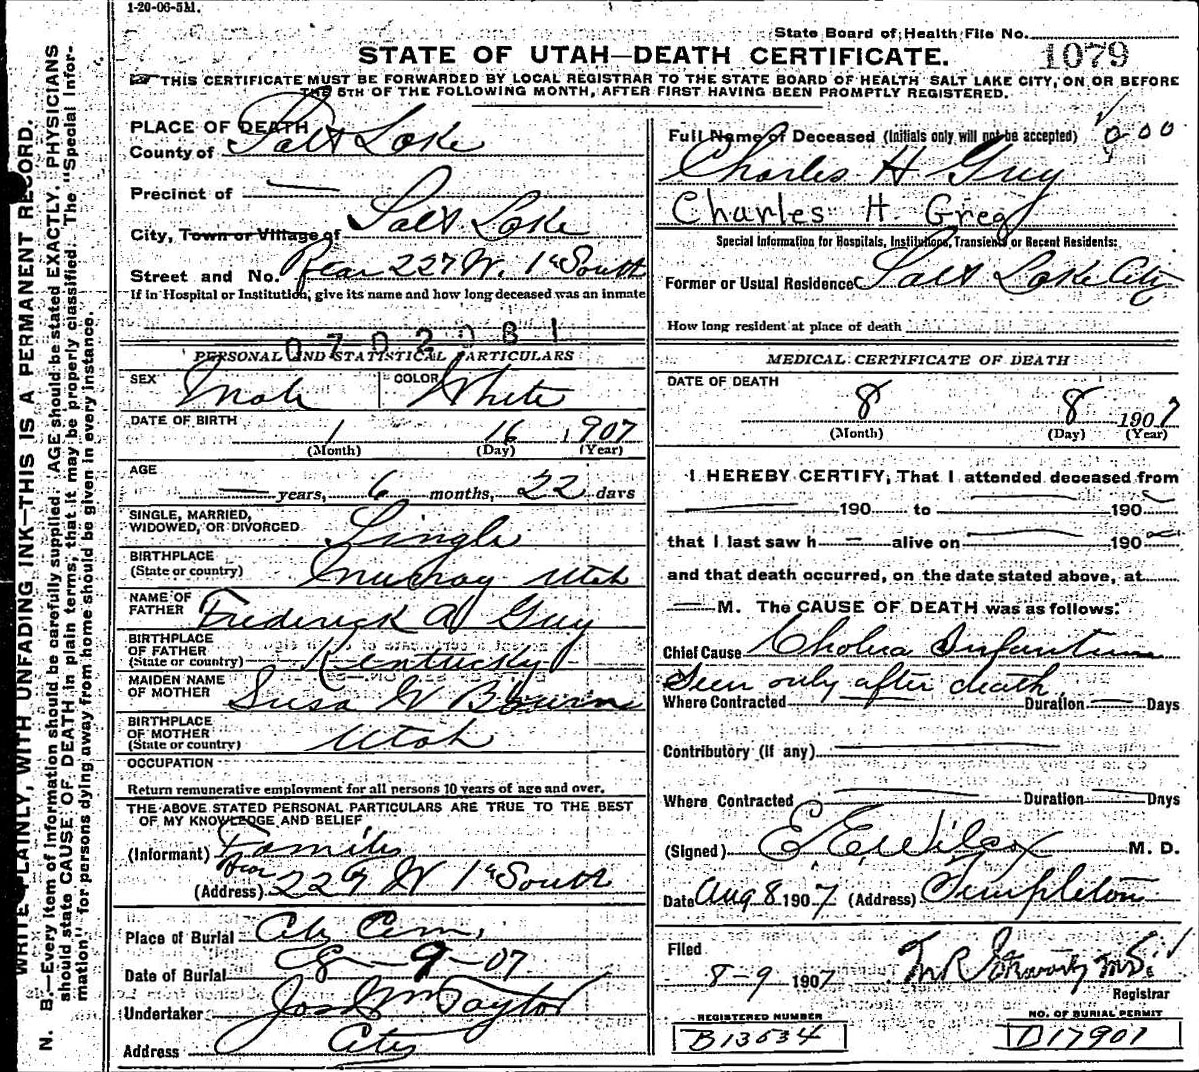 1-20-06-5M.
State Board of Health File No.
STATE OF UTAH—DEATH CERTIFICATE.
1079
THIS CERTIFICATE MUST BE FORWARDED BY LOCAL REGISTRAR TO THE STATE BOARD OF HEALTH SALT LAKE CITY, ON OR BEFORE
THE 5TH OF THE FOLLOWING MONTH, AFTER FIRST HAVING BEEN PROMPTLY REGISTERED.
WRITE PLAINLY, WITH UNFADING INK—THIS IS A PERMANENT RECORD.
N. B.—Every item of information should be carefully supplied. AGE should be stated EXACTLY. PHYSICIANS
should state CAUSE OF DEATH in plain terms, that it may be properly classified. The "Special Infor-
mation" for persons dying away from home should be given in every instance.
PLACE OF DEATH
County of Salt Lake
Precinct of —
City, Town or Village of Salt Lake
Street and No. Rear 227 W. 1st South
If in Hospital or Institution, give its name and how long deceased was an inmate
PERSONAL AND STATISTICAL PARTICULARS
SEX Male COLOR White
DATE OF BIRTH
1 16 1907
(Month) (Day) (Year)
AGE
— years, 6 months, 22 days
SINGLE, MARRIED,
WIDOWED, OR DIVORCED Single
BIRTHPLACE
(State or country) Murray Utah
NAME OF
FATHER Frederick A Guy
BIRTHPLACE
OF FATHER
(State or country) Kentucky
MAIDEN NAME
OF MOTHER Susa V
BIRTHPLACE
OF MOTHER
(State or country) Utah
OCCUPATION
Return remunerative employment for all persons 10 years of age and over.
THE ABOVE STATED PERSONAL PARTICULARS ARE TRUE TO THE BEST
OF MY KNOWLEDGE AND BELIEF
(Informant) Family
(Address) Rear 227 W 1st South
Place of Burial City Cem.
Date of Burial 8-9-07
Undertaker Jos Wm Taylor
Address City
Full Name of Deceased (Initials only will not be accepted)
Charles H Guy
Charles H. Greg
Special Information for Hospitals, Institutions, Transients or Recent Residents:
Former or Usual Residence Salt Lake City
How long resident at place of death
MEDICAL CERTIFICATE OF DEATH
DATE OF DEATH
8 8 1907
(Month) (Day) (Year)
I HEREBY CERTIFY, That I attended deceased from
— 190 to — 190
that I last saw h — alive on — 190
and that death occurred, on the date stated above, at
— M. The CAUSE OF DEATH was as follows:
Chief Cause Cholera Infantum
Seen only after death
Where Contracted — Duration — Days
Contributory (if any) —
Where Contracted — Duration — Days
(Signed) E. E. Wilcox M. D.
Date Aug 8 1907 (Address) Templeton
Filed
8-9 1907
Registrar
REGISTERED NUMBER
B13534
NO. OF BURIAL PERMIT
D17901